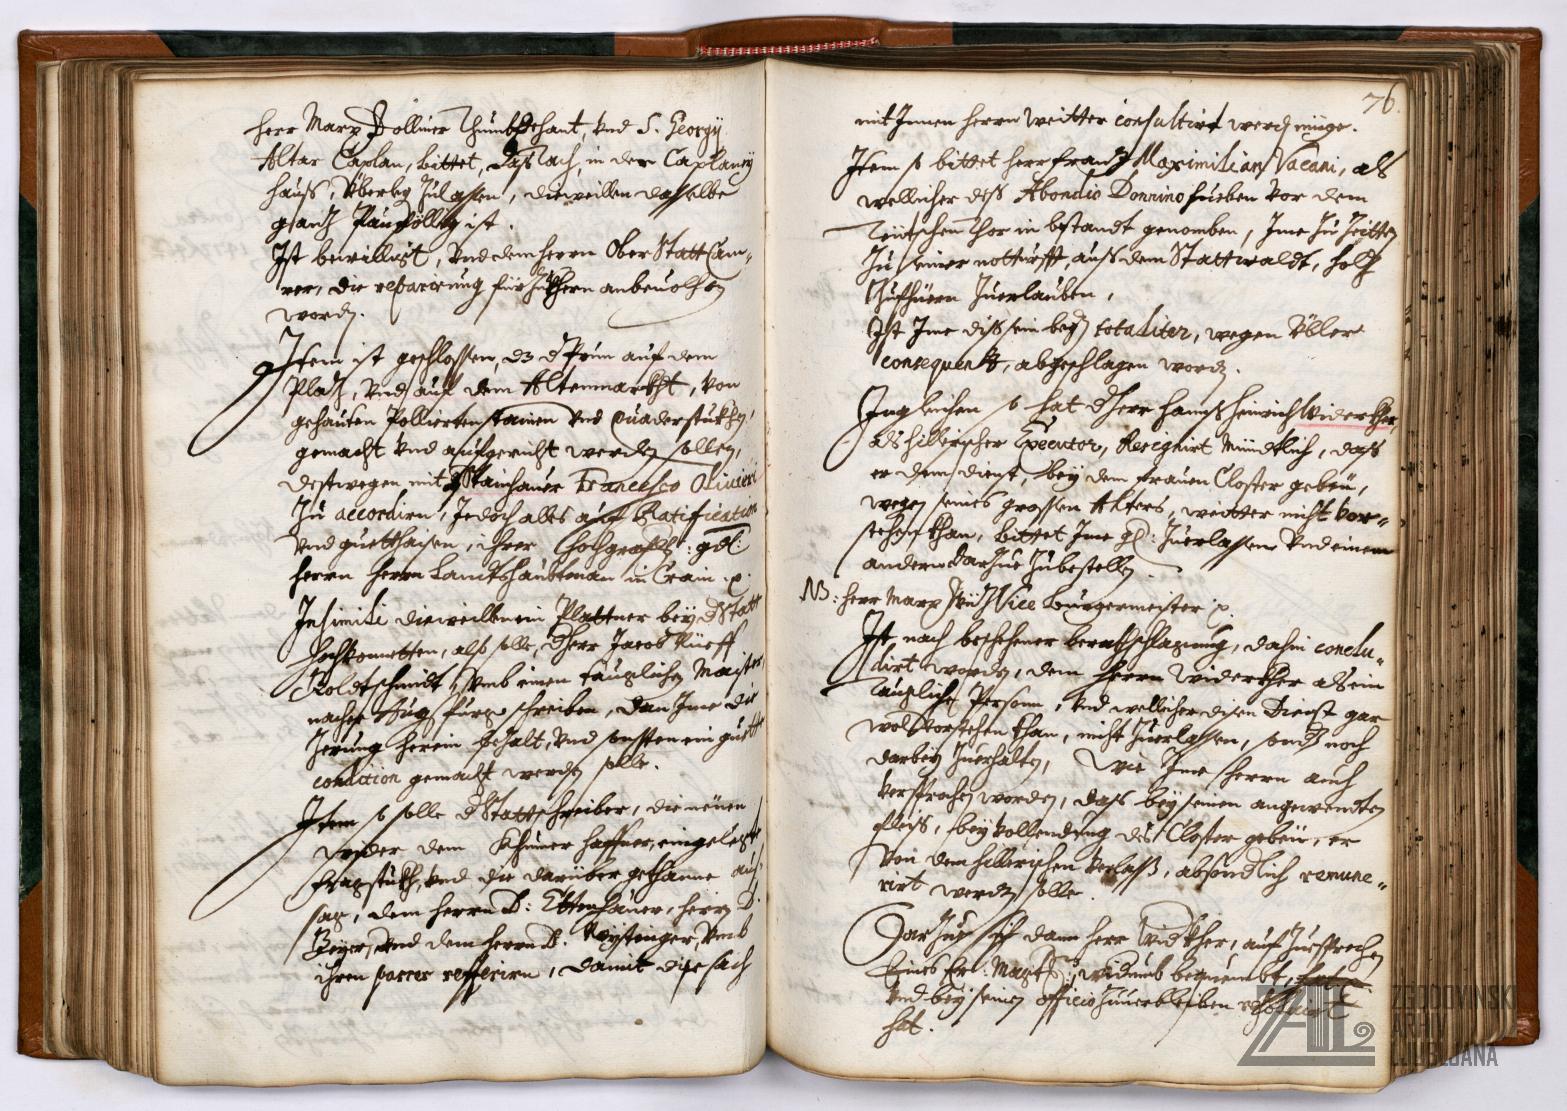 herr Marx Pollner Thumbdehant, vnd S. Georgÿ
Altar Caplan, bittet, das Tach, in der Caplaneÿ
hauß, vberleg Zulassen, dieweillen dasselbe
ganz Pauföllig ist.
Ist bewilliget, vnd dem herrn Ober Statt Cam-
rer, die reparierung für Zukhern anbeuolhen
worden.
Item ist geschlossen, dz d Prun auf dem
Plaz, vnd auf dem Altenmarkht, von
gehauten Pollierten stainen vnd Quaderstukhen,
gemacht vnd aufgericht werden sollen,
destwegen mit Stainhauer Francesco Oliuieri
Zu accordirn, Jedoch alles auf Ratification
vnd guetthaissen, ihrer hochgräfl: gd:
herrn herrn Landtshaubtman in Crain p.
In simili dieweillen ein Plattner beÿ d Statt
hochvonnetten, also solle, d herr Jacob Rueff
Goldtschmidt, vmb einen tauglichen Maister
nacher Augspurg schreiben, dan Ime die
Zerung herein bezalt, vnd sonsten ein guette
condition gemacht werden solle.
Item so solle d Stattschreiber, die neuen
wider dem Khiener haffner, eingelegte
fragstukh, vnd die darüber gethanne auß-
sag, dem herrn D: Ottenhaner, herrn D.
Geÿer, vnd dem herrn D. Wÿsinger, vmb
ihren parrer refferirn, damit dise sach
76.
mit Innen herrn weitter consultirt werden müge.
Item so bittet herr Franz Maximilian Vacani, als
wellicher deß Abondio Donnino hueben vor dem
Teutschen Thor in bstandt genomben, Ime Zu Zeitten
Zu seiner notturfft, auß dem Stattwaldt, holz
Zuführn Zuerlauben,
Ist Ime diß sein begern totaliter, wegen vbller
consequenz, abgeschlagen worden.
Ingleichen so hat d herr Hanß Heinrich Widerkher,
als hillerischer Executor, Resignirt mündtlich, daß
er dem dienst, beÿ dem frauen Closter gebeu,
wegen seines grossen Alters, weitter nicht vor-
stehen khan, bittet Ime gl: Zuerlassen vnd einem
andern darzue Zubestellen.
NB: herr Marx Wiz Vice Burgermeister p.
Ist nach beschehener berathschlagung, dahin conclu-
dirt worden, dem herrn Widerkher als ein
taugliche Persson, vnd wellicher disen Dienst gar
wol vorstehen khan, nicht Zuerlassen, sond noch
darbeÿ Zuerhalten, wie Ime herrn auch
versprochen worden, daß beÿ seinen angewendten
fleiß, beÿ vollendung deß Closter gebeu, er
von dem hillerischen verlaß, absondlich remune-
rirt werden solle.
Darzue sich dann herr Widkher, auf Zuesprechen
Eines Er: Magts: widumb bequembt,
vnd beÿ seinen officio Zuuerbleiben resoluirt
hat.
ZAL
ZGODOVINSKI
ARHIV
LJUBLJANA